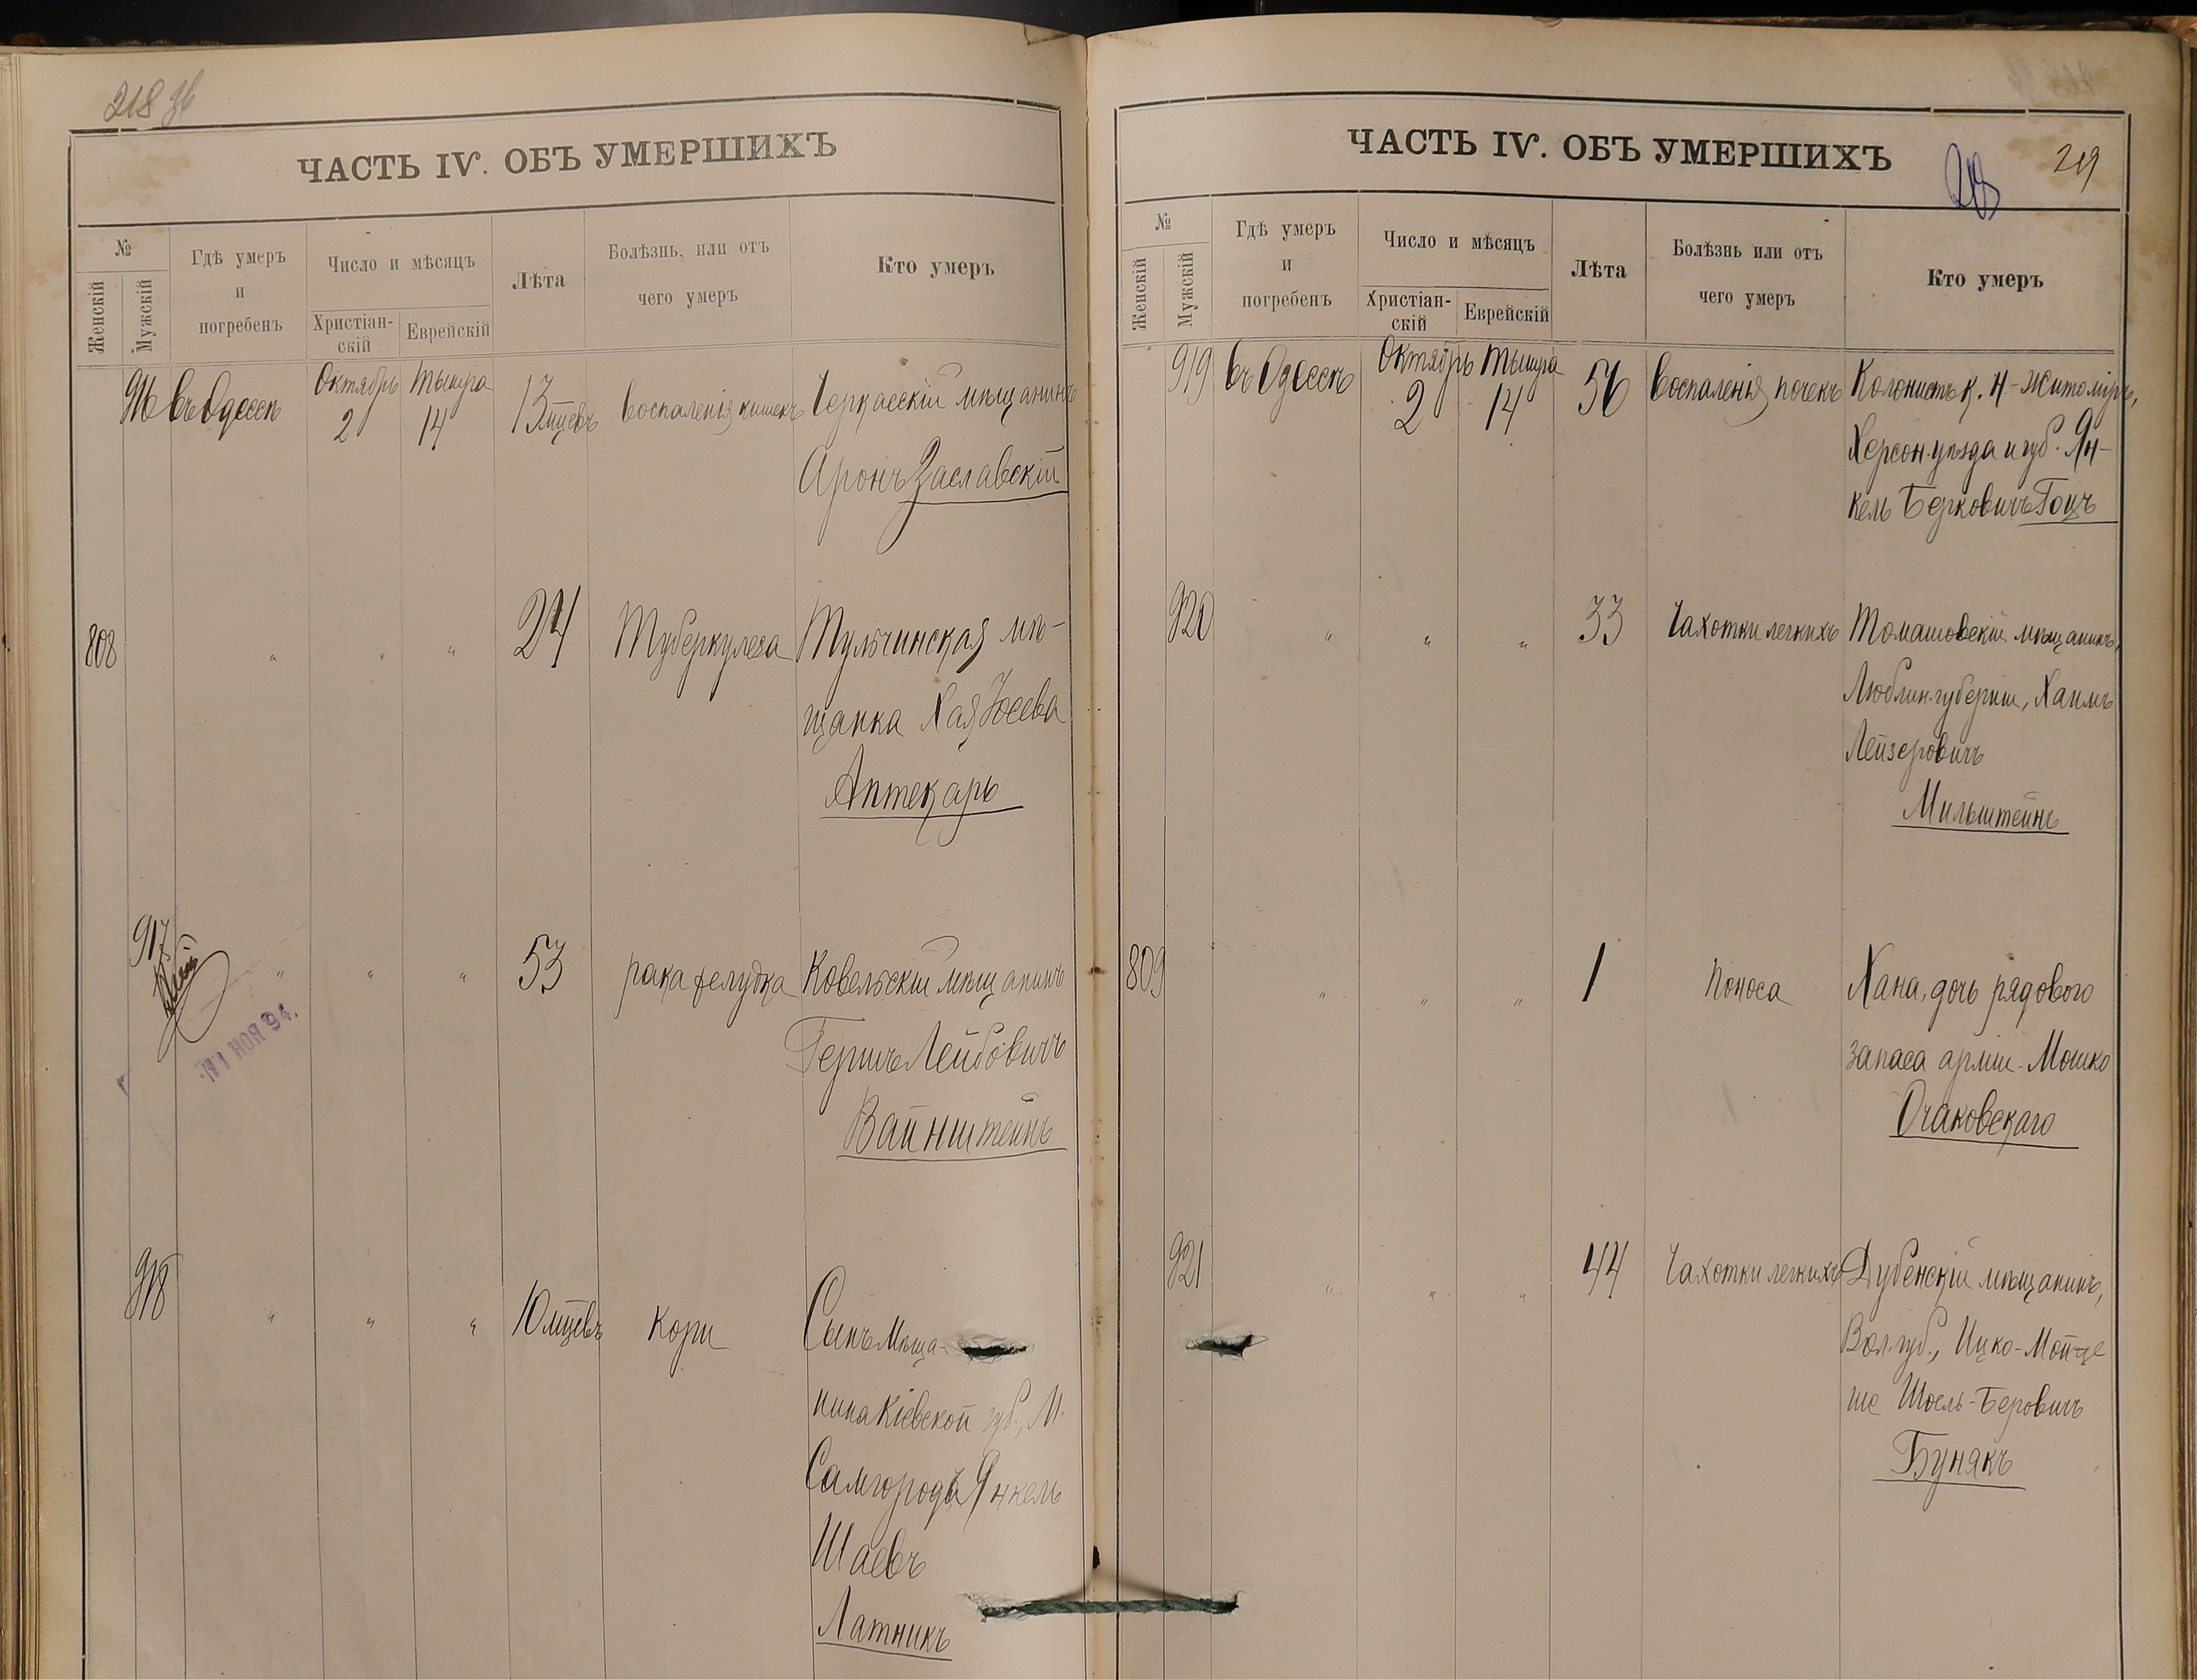 218 зв
ЧАСТЬ IV. ОБЪ УМЕРШИХЪ
№
Женскій
Мужскій
Гдѣ умеръ
и
погребенъ
Число и мѣсяцъ
Христіан-
скій
Еврейскій
Лѣта
Болѣзнь, или отъ
чего умеръ
Кто умеръ
916 въ Одессѣ Октябрь 2 Тышра 14 13 мцевъ воспаленія кишекъ Черкасскій мѣщанинъ
Аронъ Заславскій
808 " " " 24 Туберкулеза Тульчинская мѣ-
щанка Хая Іосева
Аптекарь
917 " " " 53 рака желудка Ковельскій мѣщанинъ
Гершъ Лейбовичъ
Вайнштейнъ
11 НОЯ 94.
918 " " " 10 мцевъ Кори Сынъ Мѣща-
нина Кіевской губ., М.
Самгородъ, Янкель
Шаевъ
Латникъ
ЧАСТЬ IV. ОБЪ УМЕРШИХЪ
219
№
Женскій
Мужскій
Гдѣ умеръ
и
погребенъ
Число и мѣсяцъ
Христіан-
скій
Еврейскій
Лѣта
Болѣзнь или отъ
чего умеръ
Кто умеръ
919 въ Одессѣ Октябрь 2 Тышра 14 56 воспаленія почекъ Колонистъ к. Н-Житоміръ,
Херсон. уѣзда и губ. Ян-
кель Берковичъ Гоцъ
920 " " " 33 Чахотки легкихъ Томашовскій мѣщанинъ,
Люблин. губерніи, Хаимъ
Лейзеровичъ
Мильштейнъ
809 " " " 1 Поноса Хана, дочь рядового
запаса арміи Мошко
Очаковскаго
921 " " " 44 Чахотки легкихъ Дубенскій мѣщанинъ,
Вол. губ., Ицко-Мой-
ше Шоель-Беровичъ
Бунякъ